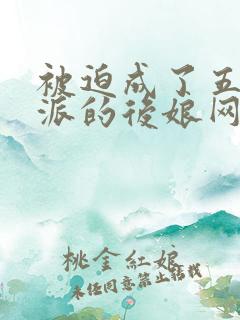 被迫成了五
派的後娘网
桃金紅娘
未经同意禁止转载